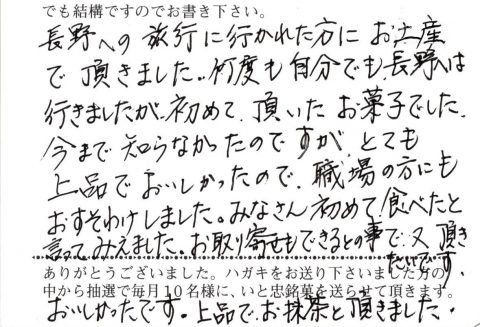 でも結構ですのでお書き下さい。
長野への旅行に行かれた方にお土産
で頂きました。何度も自分でも、長野へは
行きましたが、初めて、頂いたお菓子でした。
今まで知らなかったのですが、とても
上品でおいしかったので、職場の方にも
おすそわけしました。みなさん初めて食べたと
言ってみえました。お取り寄せもできるとの事で、又頂き
たいです。
ありがとうございました。ハガキをお送り下さいました方の
中から抽選で毎月10名様に、いと忠銘菓を送らせて頂きます。
おいしかったです。上品で、お抹茶と頂きました。